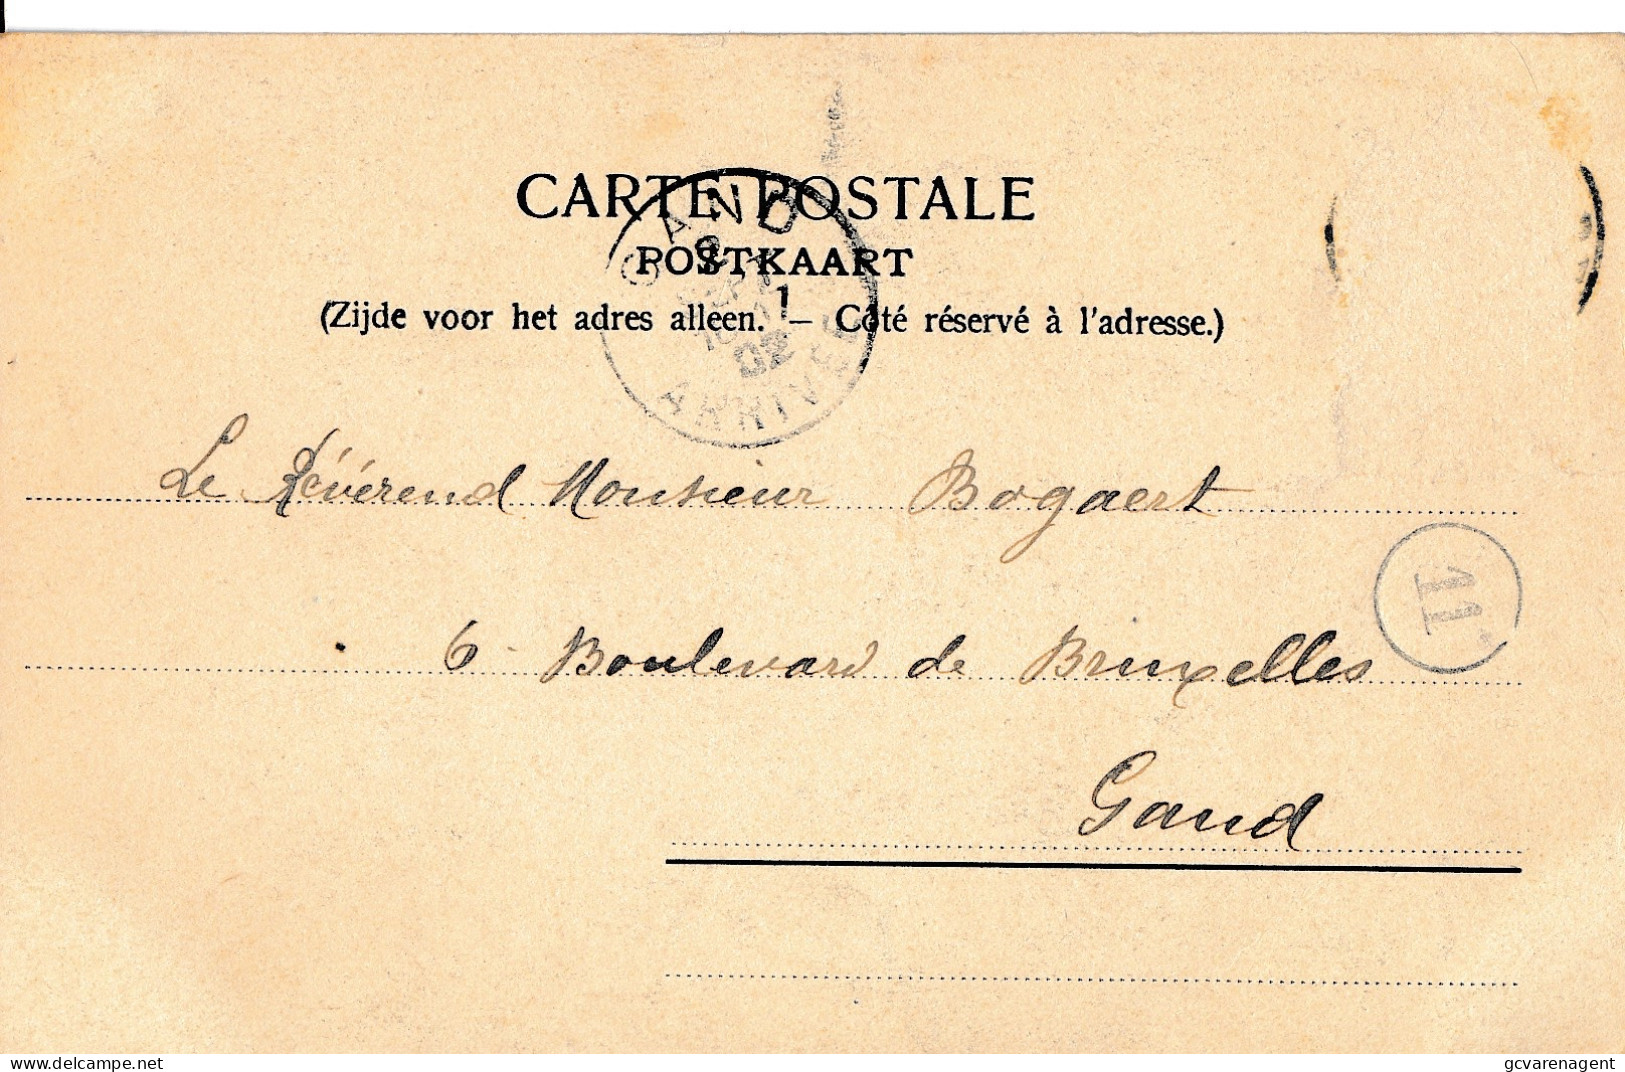 CARTE POSTALE
POSTKAART
(Zijde voor het adres alleen. — Côté réservé à l'adresse.)
GAND
1
02
ARRIVÉE
Le Révérend Monsieur Bogaert
11
6 Boulevard de Bruxelles
Gand
the-bidstart-delcampe.net
gcvarenagent